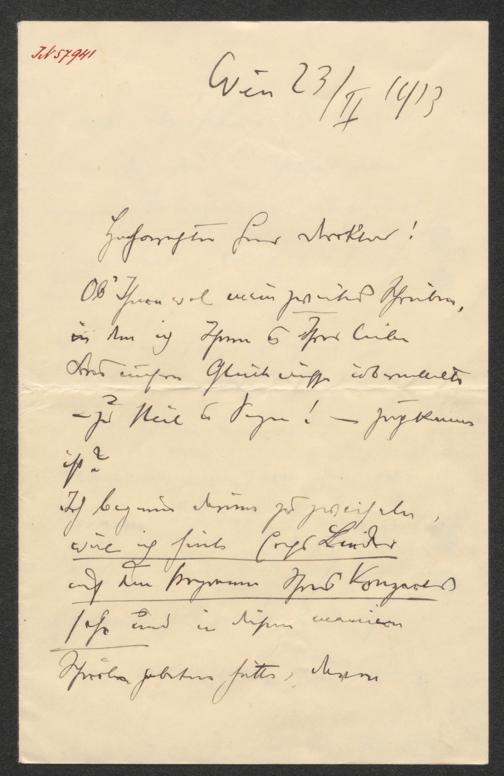 JN 57941
Wien 23/II 1913
Hochgeehrter Herr Direktor!
Ob Ihnen wol mein zweites Schreiben,
in dem ich Ihnen & Ihrer lieben
Glückwünsche übermittelte
– zu Heil & Segen! – zugekommen
ist?
Ich beginne daran zu zweifeln,
weil ich heute Lieder
auf dem Programm Ihres Konzertes
sehe und in diesem meinem
Schreiben gebeten hatte, davon